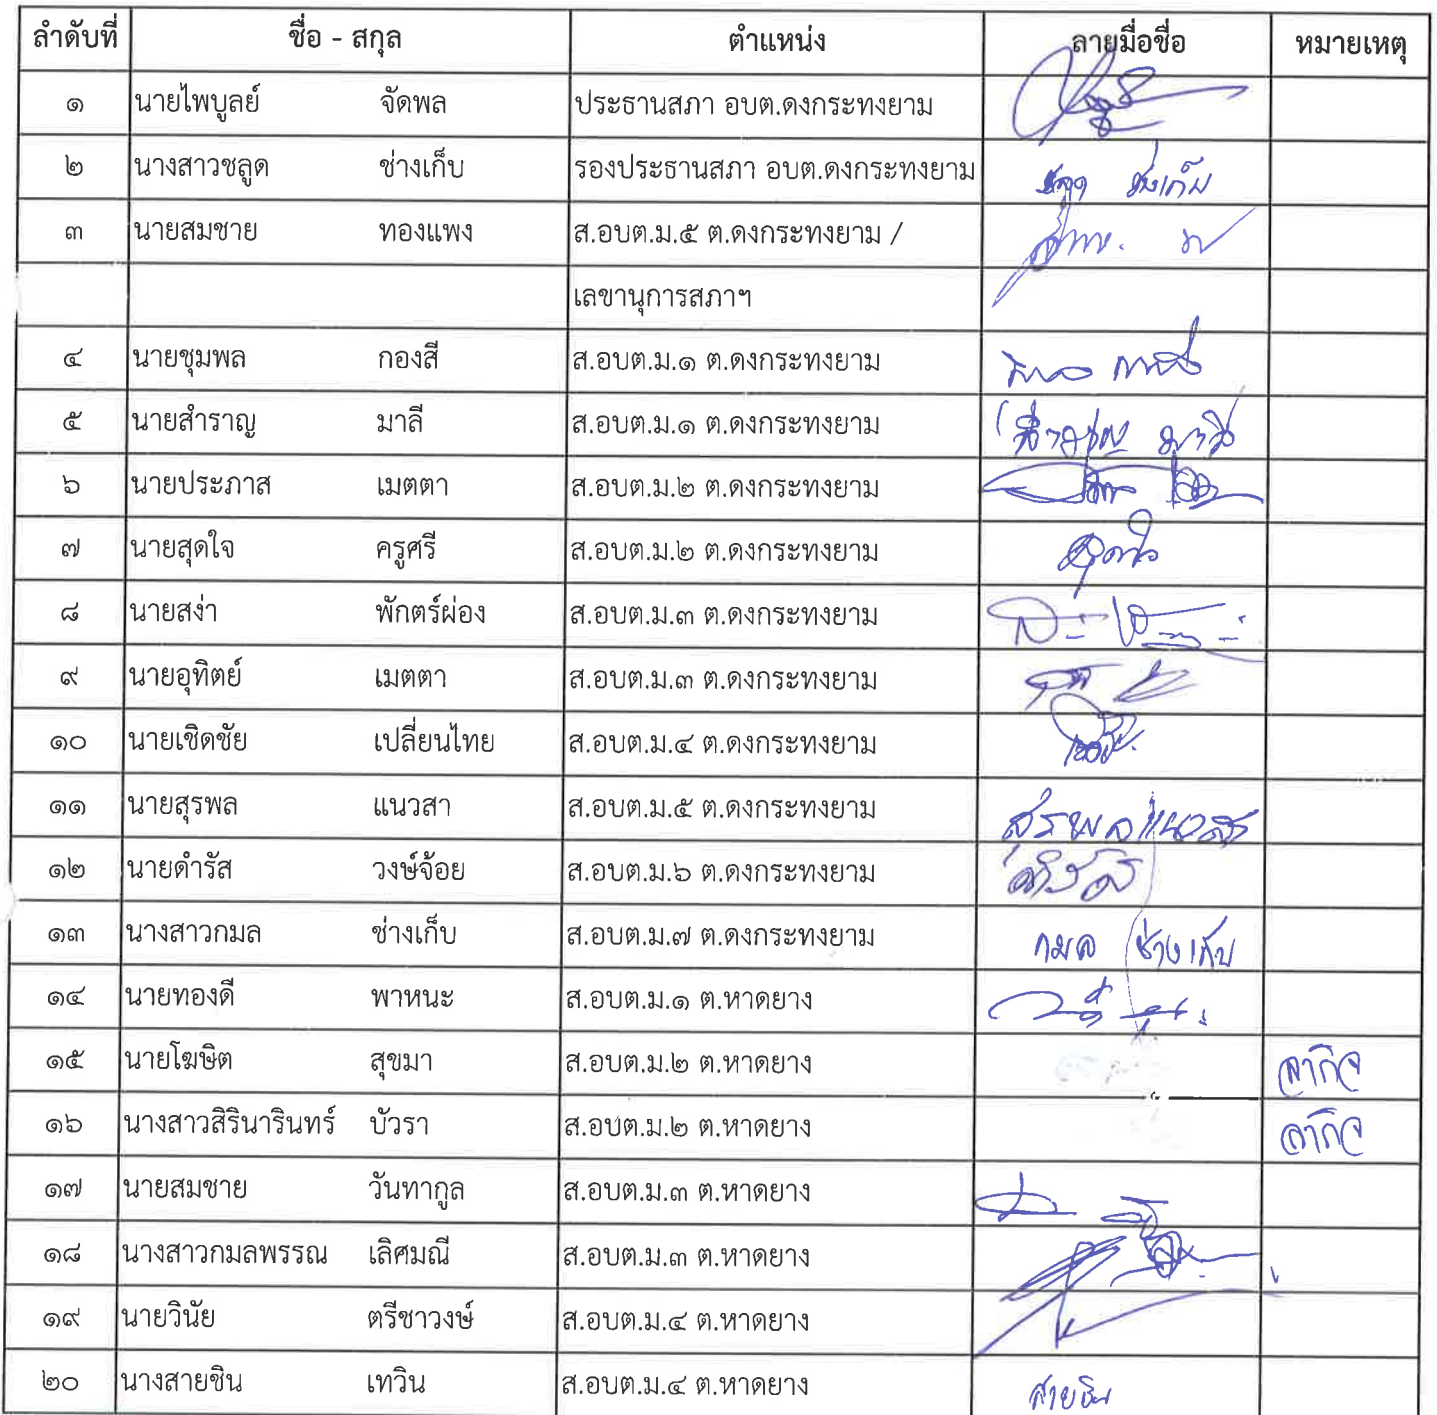 ลำดับที่ ชื่อ - สกุล ตำแหน่ง ลายมือชื่อ หมายเหตุ
๑ นายไพบูลย์ จัดพล ประธานสภา อบต.ดงกระทงยาม
๒ นางสาวชลูด ช่างเก็บ รองประธานสภา อบต.ดงกระทงยาม ชลูด ช่างเก็บ
๓ นายสมชาย ทองแพง ส.อบต.ม.๕ ต.ดงกระทงยาม /
เลขานุการสภาฯ
๔ นายชุมพล กองสี ส.อบต.ม.๑ ต.ดงกระทงยาม
๕ นายสำราญ มาลี ส.อบต.ม.๑ ต.ดงกระทงยาม สำราญ มาลี
๖ นายประภาส เมตตา ส.อบต.ม.๒ ต.ดงกระทงยาม
๗ นายสุดใจ ครูศรี ส.อบต.ม.๒ ต.ดงกระทงยาม สุดใจ
๘ นายสง่า พักตร์ผ่อง ส.อบต.ม.๓ ต.ดงกระทงยาม
๙ นายอุทิตย์ เมตตา ส.อบต.ม.๓ ต.ดงกระทงยาม
๑๐ นายเชิดชัย เปลี่ยนไทย ส.อบต.ม.๔ ต.ดงกระทงยาม
๑๑ นายสุรพล แนวสา ส.อบต.ม.๕ ต.ดงกระทงยาม สุรพล แนวสา
๑๒ นายดำรัส วงษ์จ้อย ส.อบต.ม.๖ ต.ดงกระทงยาม ดำรัส
๑๓ นางสาวกมล ช่างเก็บ ส.อบต.ม.๗ ต.ดงกระทงยาม กมล ช่างเก็บ
๑๔ นายทองดี พาหนะ ส.อบต.ม.๑ ต.หาดยาง
๑๕ นายโฆษิต สุขมา ส.อบต.ม.๒ ต.หาดยาง ลากิจ
๑๖ นางสาวสิรินารินทร์ บัวรา ส.อบต.ม.๒ ต.หาดยาง ลากิจ
๑๗ นายสมชาย วันทากูล ส.อบต.ม.๓ ต.หาดยาง
๑๘ นางสาวกมลพรรณ เลิศมณี ส.อบต.ม.๓ ต.หาดยาง
๑๙ นายวินัย ตรีชาวงษ์ ส.อบต.ม.๔ ต.หาดยาง
๒๐ นางสายชิน เทวิน ส.อบต.ม.๔ ต.หาดยาง สายชิน